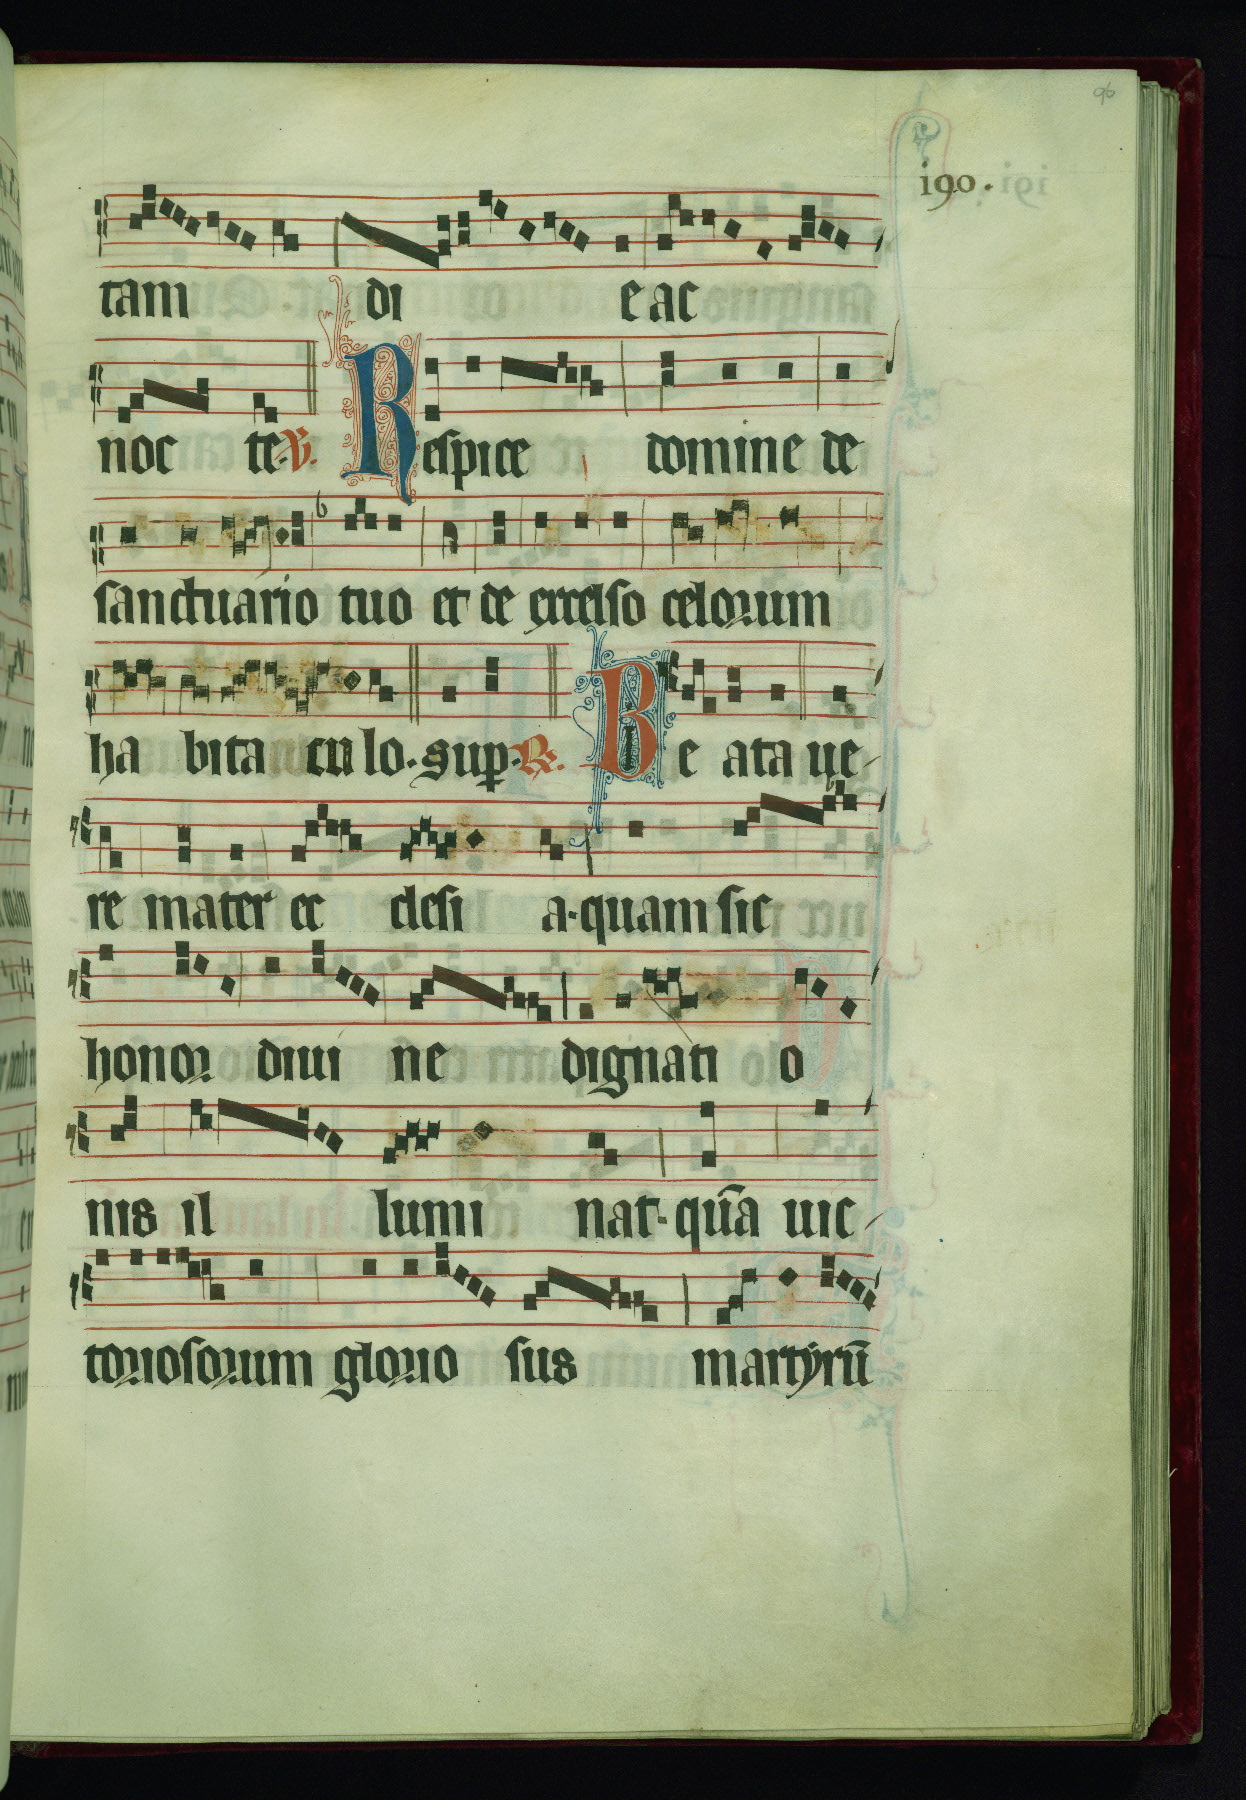 96
190.
tam di e ac
noc te. V. Respice domine de
sanctuario tuo et de excelso celorum
ha bita culo. sup. R. Be ata ue-
re mater ec clesi a. quam sic
honor diui ne dignati o
nis il lumi nat. quā uic-
toriosorum glorio sus martyrū